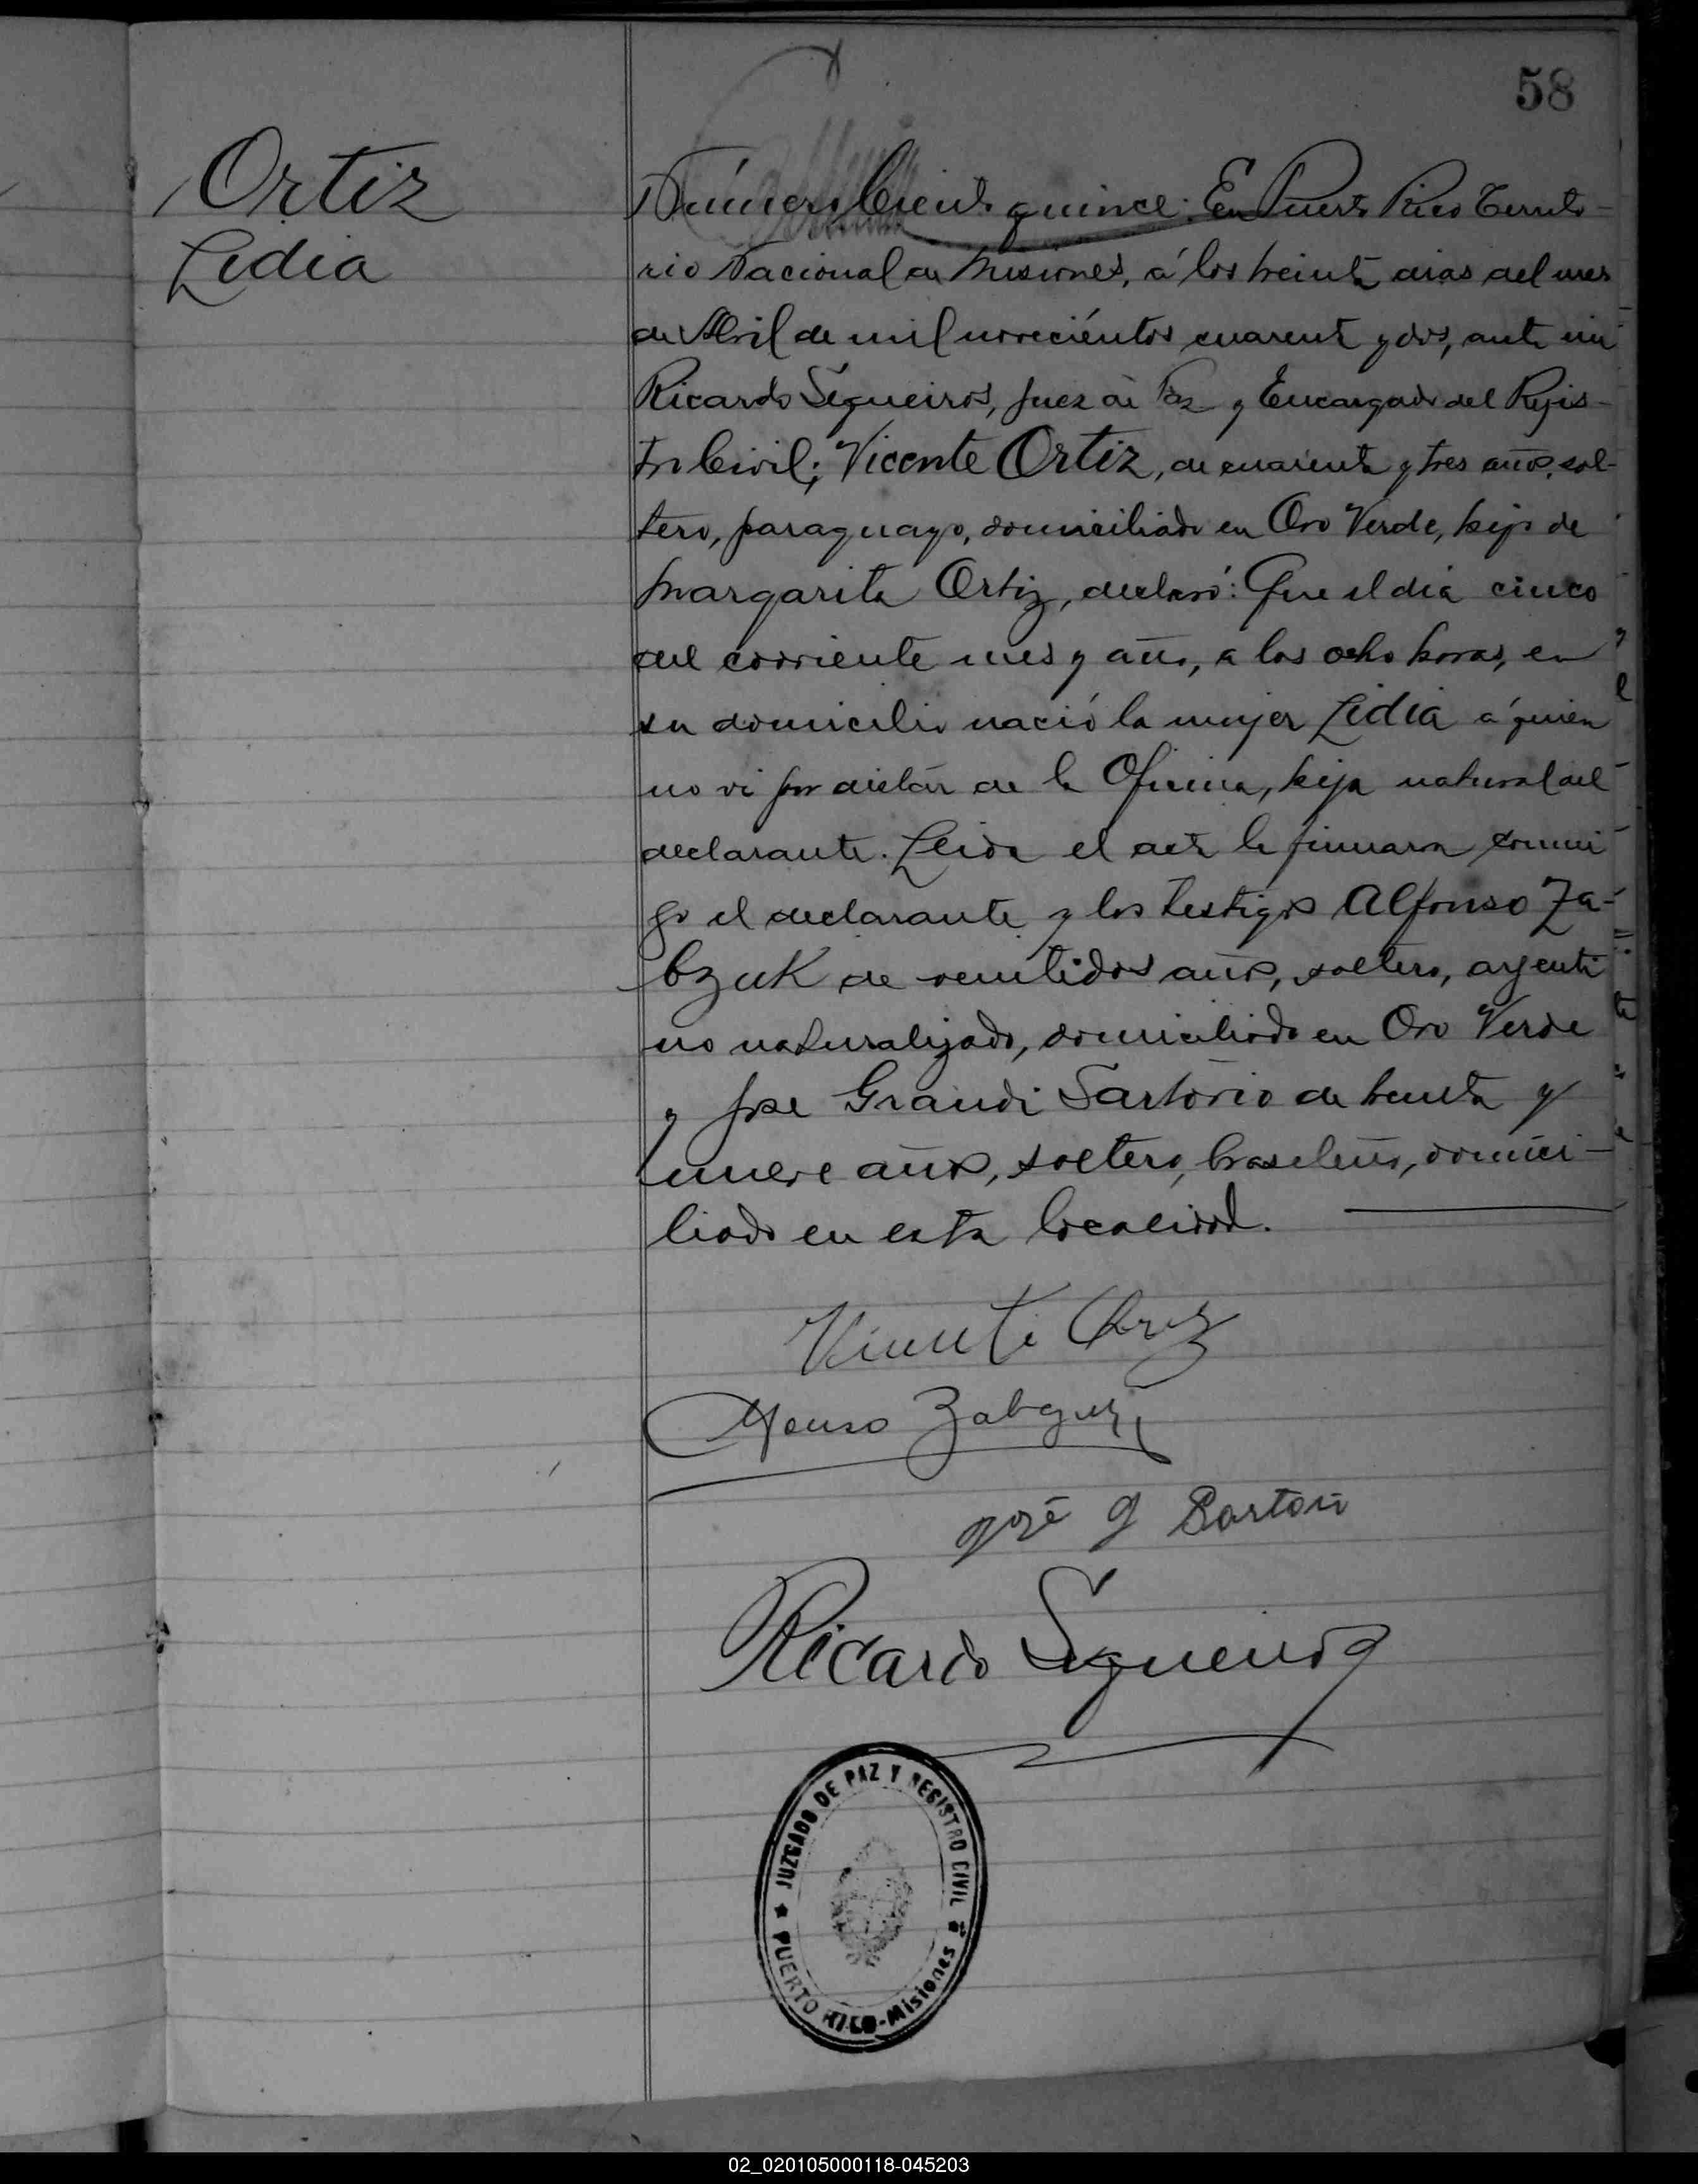 58
Ortiz
Lidia
Número Ciento quince: En Puerto Rico Territo-
rio Nacional de Misiones, á los treinta dias del mes
de Abril de mil novecientos cuarenta y dos, ante mi
Ricardo Segueiros, Juez de Paz y Encargado del Rejis-
tro Civil; Vicente Ortiz, de cuarenta y tres años, sol-
tero, paraguayo, domiciliado en Oro Verde, hijo de
Margarita Ortiz, declaró: Que el dia cinco
del corriente mes y año, a las ocho horas, en
su domicilio nació la mujer Lidia á quien
no vi por distár de la Oficina, hija natural del
declarante. Leida el acta la firmaron conmi
go el declarante y los testigos Alfonso Za-
bzuk de veintidos años, soltero, argenti
no naturalizado, domiciliado en Oro Verde
y José Grandi Sartorio de treinta y
nueve años, soltero, brasileño, domici-
liado en esta localidad.
Vicente Ortiz
Alfonso Zabzuk
José G Sartori
Ricardo Segueiros
JUZGADO DE PAZ Y REGISTRO CIVIL
PUERTO RICO-Misiones
02_020105000118-045203